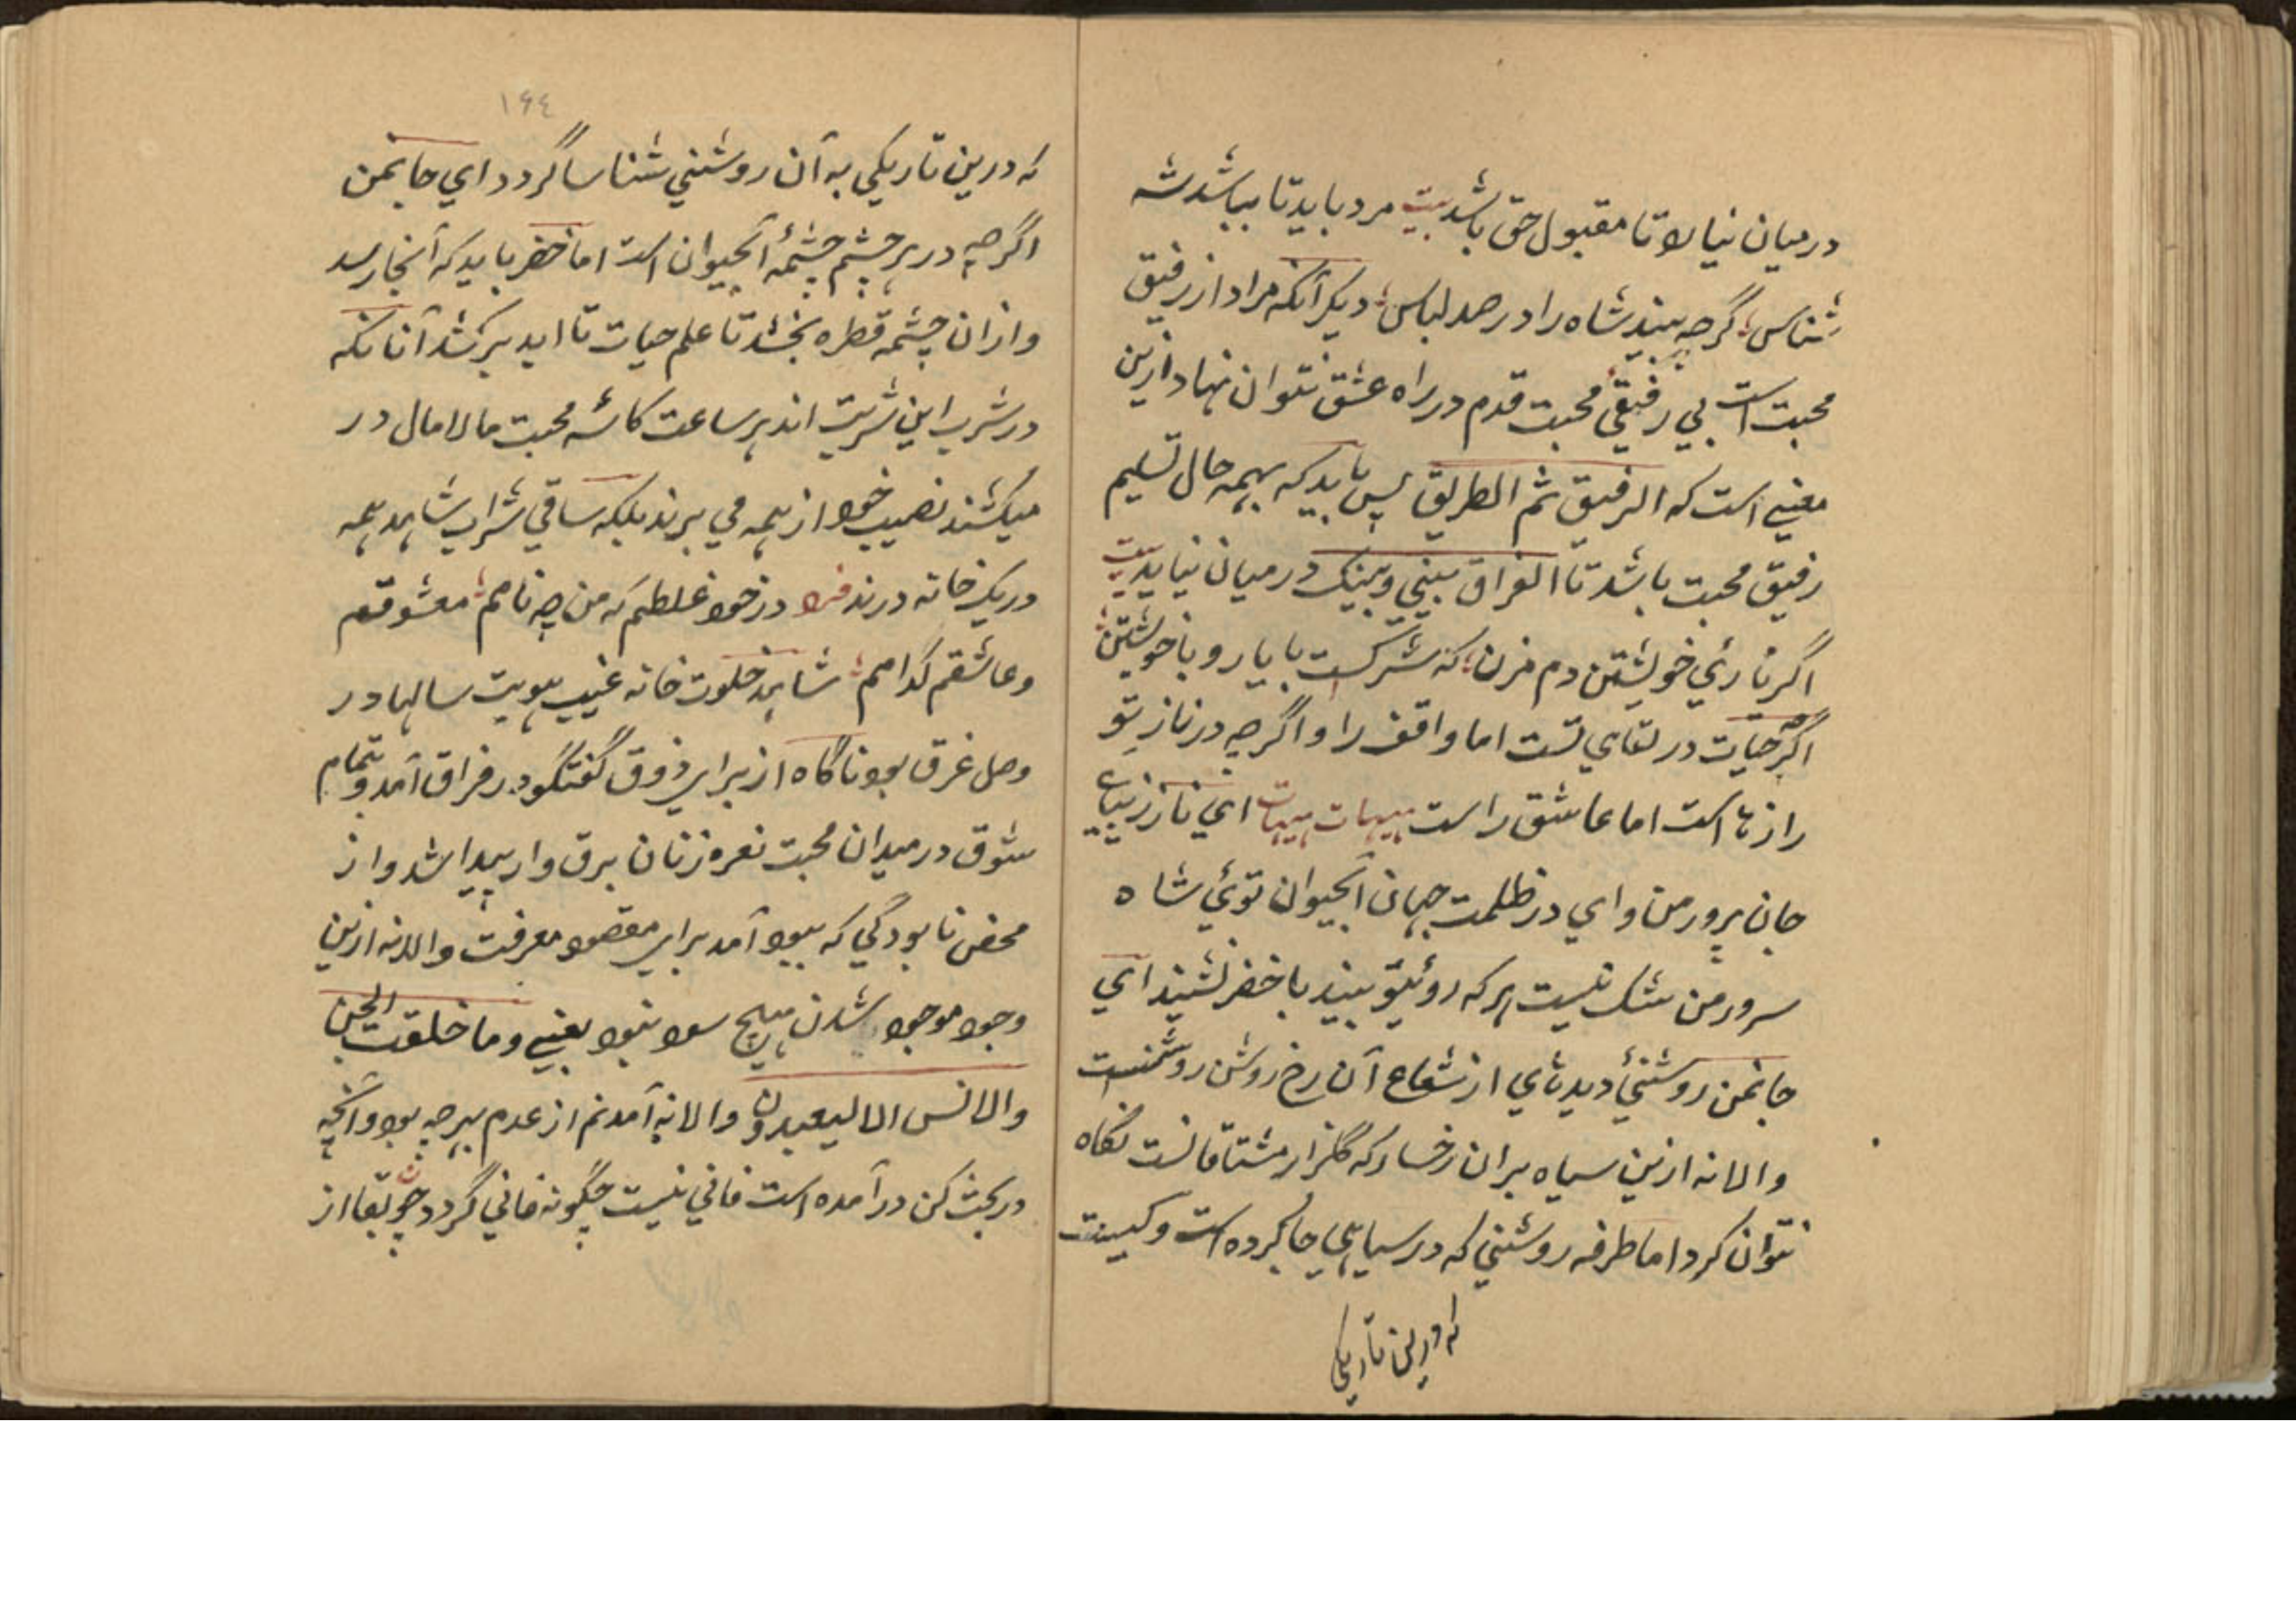 درمیان نیالاتا مقبول حق باشد بیت مرد باید تا بباشد شه
شناس گرچه بیند شاه را در صد لباس دیگر آنکه مراد از رفیق
محبت است بی رفیقی محبت قدم در راه عشق نتوان نهاد ازین
معنی است که الرفیق ثم الطریق پس باید که بهمه حال تسلیم
رفیق محبت باشد تا الفراق بینی وبینک درمیان نیاید بیت
اگر یاری خویشتن دم مزن که شرکست با یار و با خویشتن
اگر حیات در لقای تست اما واقف را و اگرچه در ناز تو
رازها است اما عاشق راست هیهات هیهات ای ناززیبای
جان پرور من وای در ظلمت جهان آبحیوان توئی شاه
سرور من شک نیست هر که روئیتو بیند با خضر نشیند ای
جانمن روشنئ دیدهای از شعاع آن رخ روشن روشنست
والا نه ازین سیاه بران رخسار که گلزار مشتاقانست نگاه
نتوان کرد اما طرفه روشنی که در سیاهی جا کرده است و کیست
که درین تاریکی
۱۶۴
که درین تاریکی به آن روشنی شناسا گردد ای جانمن
اگرچه در هر چشم چشمهٔ آبحیوان است اما خضر باید که آنجا رسد
وازان چشمه قطره بخشد تا علم حیات تا ابد برکشد آنانکه
در شرب این شربت اند هر ساعت کاسهٔ محبت مالامال در
میکشند نصیب خود از همه می برند بلکه ساقی شراب شاهد همه
در یک خانه درند فرد در خود غلطم که من چه نامم معشوقم
وعاشقم کدامم شاهد خلوت خانه غیب هویت سالها در
وصل غرق بود ناگاه از برای ذوق گفتگو در فراق آمد و تمام
شوق در میدان محبت نعره زنان برق وار پیدا شد واز
محض نابودگی که ببود آمد برای مقصود معرفت والا نه ازین
وجود موجود شدن هیچ سود نبود یعنی وما خلقت الجن
والانس الا لیعبدون والا نه آمدنم از عدم بهر چه بود و آنچه
در بحث کن در آمده است فانی نیست چگونه فانی گردد چو بقا از